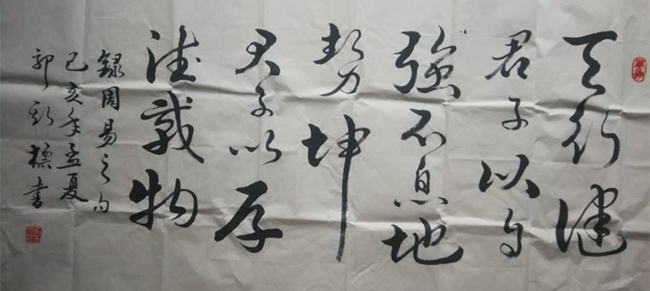 天行健
君子以自
強不息地
勢坤
君子以厚
德載物
録周易之句
己亥年孟夏
郭彩標書